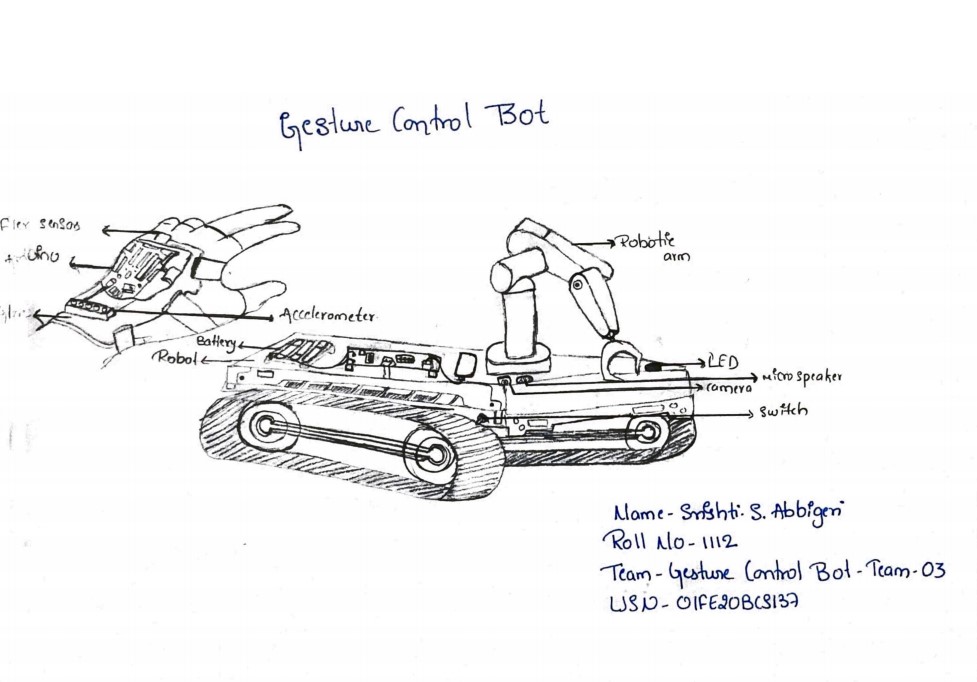 Gesture Control Bot
Flex sensor
Glove
Accelerometer
Battery
Robot
Robotic
arm
LED
Micro speaker
camera
Switch
Name - Srishti. S. Abbigeri
Roll No - 1112
Team - Gesture Control Bot - Team - 03
USN - 01FE20BCS137